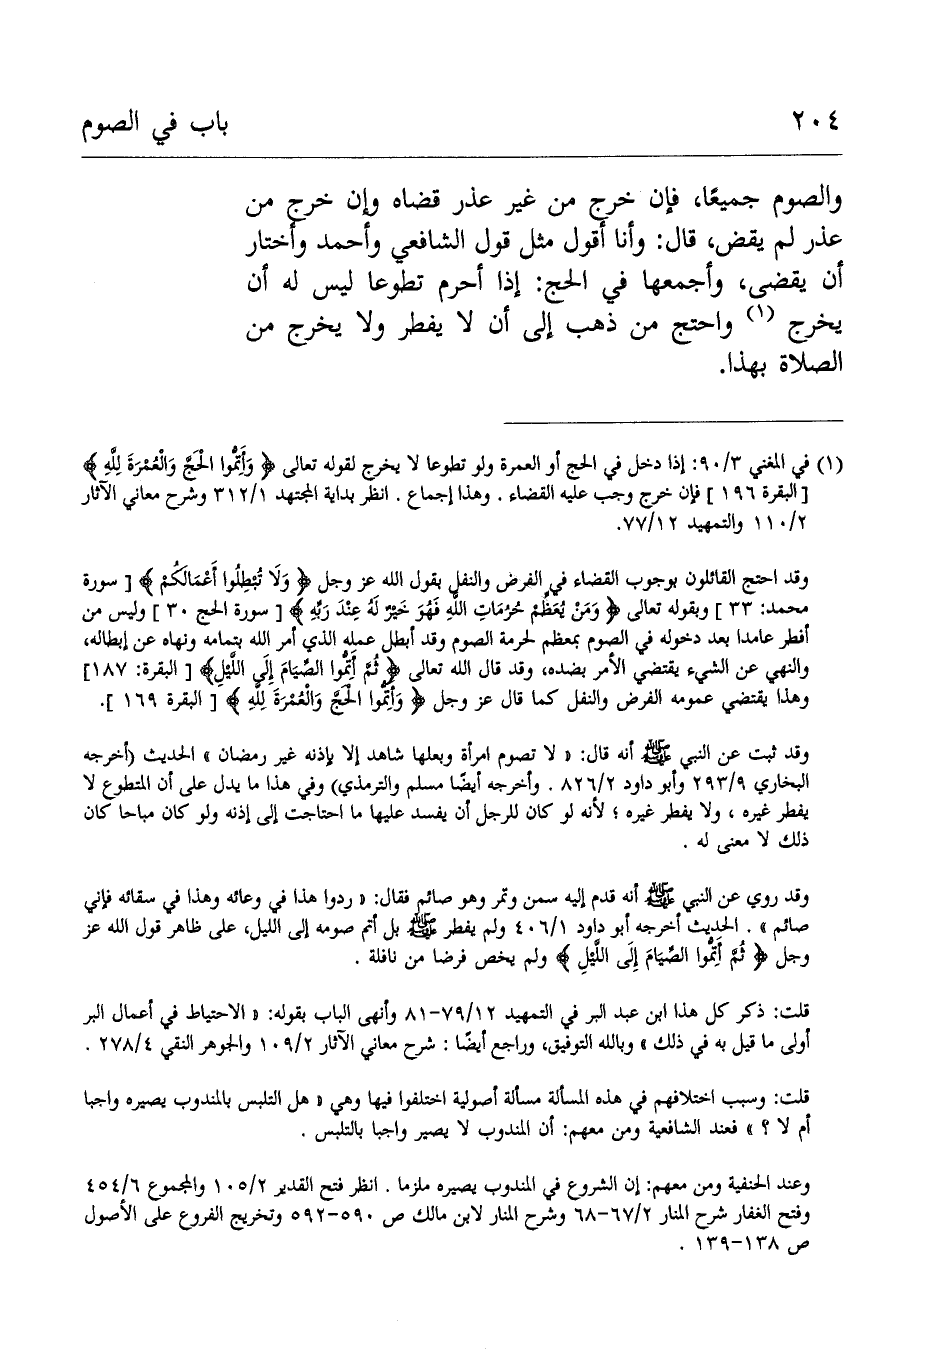 ٢٠٤ باب في الصوم
والصوم جميعًا، فإن خرج من غير عذر قضاه وإن خرج من
عذر لم يقض، قال: وأنا أقول مثل قول الشافعي وأحمد وأختار
أن يقضى، وأجمعها في الحج: إذا أحرم تطوعا ليس له أن
يخرج (١) واحتج من ذهب إلى أن لا يفطر ولا يخرج من
الصلاة بهذا.
(١) في المغني ٩٠/٣: إذا دخل في الحج أو العمرة ولو تطوعا لا يخرج لقوله تعالى ﴿ وَأَتِمُّوا الْحَجَّ وَالْعُمْرَةَ لِلَّهِ ﴾
[ البقرة ١٩٦ ] فإن خرج وجب عليه القضاء . وهذا إجماع . انظر بداية المجتهد ٣١٢/١ وشرح معاني الآثار
١١٠/٢ والتمهيد ٧٧/١٢.
وقد احتج القائلون بوجوب القضاء في الفرض والنفل بقول الله عز وجل ﴿ وَلَا تُبْطِلُوا أَعْمَالَكُمْ ﴾ [ سورة
محمد: ٣٣ ] وبقوله تعالى ﴿ وَمَنْ يُعَظِّمْ حُرُمَاتِ اللَّهِ فَهُوَ خَيْرٌ لَهُ عِنْدَ رَبِّهِ ﴾ [ سورة الحج ٣٠ ] وليس من
أفطر عامدا بعد دخوله في الصوم بمعظم لحرمة الصوم وقد أبطل عمله الذي أمر الله بتمامه ونهاه عن إبطاله،
والنهي عن الشيء يقتضي الأمر بضده، وقد قال الله تعالى ﴿ ثُمَّ أَتِمُّوا الصِّيَامَ إِلَى اللَّيْلِ﴾ [ البقرة: ١٨٧]
وهذا يقتضي عمومه الفرض والنفل كما قال عز وجل ﴿ وَأَتِمُّوا الْحَجَّ وَالْعُمْرَةَ لِلَّهِ ﴾ [ البقرة ١٦٩ ].
وقد ثبت عن النبي ﷺ أنه قال: « لا تصوم امرأة وبعلها شاهد إلا بإذنه غير رمضان » الحديث (أخرجه
البخاري ٢٩٣/٩ وأبو داود ٨٢٦/٢ . وأخرجه أيضًا مسلم والترمذي) وفي هذا ما يدل على أن المتطوع لا
يفطر غيره ، ولا يفطر غيره ؛ لأنه لو كان للرجل أن يفسد عليها ما احتاجت إلى إذنه ولو كان مباحا كان
ذلك لا معنى له .
وقد روي عن النبي ﷺ أنه قدم إليه سمن وتمر وهو صائم فقال: « ردوا هذا في وعائه وهذا في سقائه فإني
صائم » . الحديث أخرجه أبو داود ٤٠٦/١ ولم يفطر ﷺ بل أتم صومه إلى الليل، على ظاهر قول الله عز
وجل ﴿ ثُمَّ أَتِمُّوا الصِّيَامَ إِلَى اللَّيْلِ ﴾ ولم يخص فرضا من نافلة .
قلت: ذكر كل هذا ابن عبد البر في التمهيد ٧٩/١٢-٨١ وأنهى الباب بقوله: « الاحتياط في أعمال البر
أولى ما قيل به في ذلك » وبالله التوفيق، وراجع أيضًا : شرح معاني الآثار ١٠٩/٢ والجوهر النقي ٢٧٨/٤ .
قلت: وسبب اختلافهم في هذه المسألة مسألة أصولية اختلفوا فيها وهي « هل التلبس بالمندوب يصيره واجبا
أم لا ؟ » فعند الشافعية ومن معهم: أن المندوب لا يصير واجبا بالتلبس .
وعند الحنفية ومن معهم: إن الشروع في المندوب يصيره ملزما . انظر فتح القدير ١٠٥/٢ والمجموع ٤٥٤/٦
وفتح الغفار شرح المنار ٦٧/٢-٦٨ وشرح المنار لابن مالك ص ٥٩٠-٥٩٢ وتخريج الفروع على الأصول
ص ١٣٨-١٣٩ .